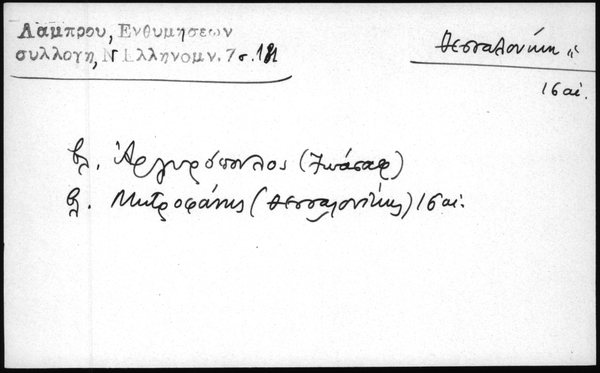 Λαμπρου, Ενθυμησεων
συλλογη, Ν Ελληνομν. 7 σ. 181
Θεσσαλονίκη
16 αἰ.
βλ. Ἀργυρόπουλος (Ἰωάσαφ)
βλ. Μητροφάνης (Θεσσαλονίκης) 16 αἰ.